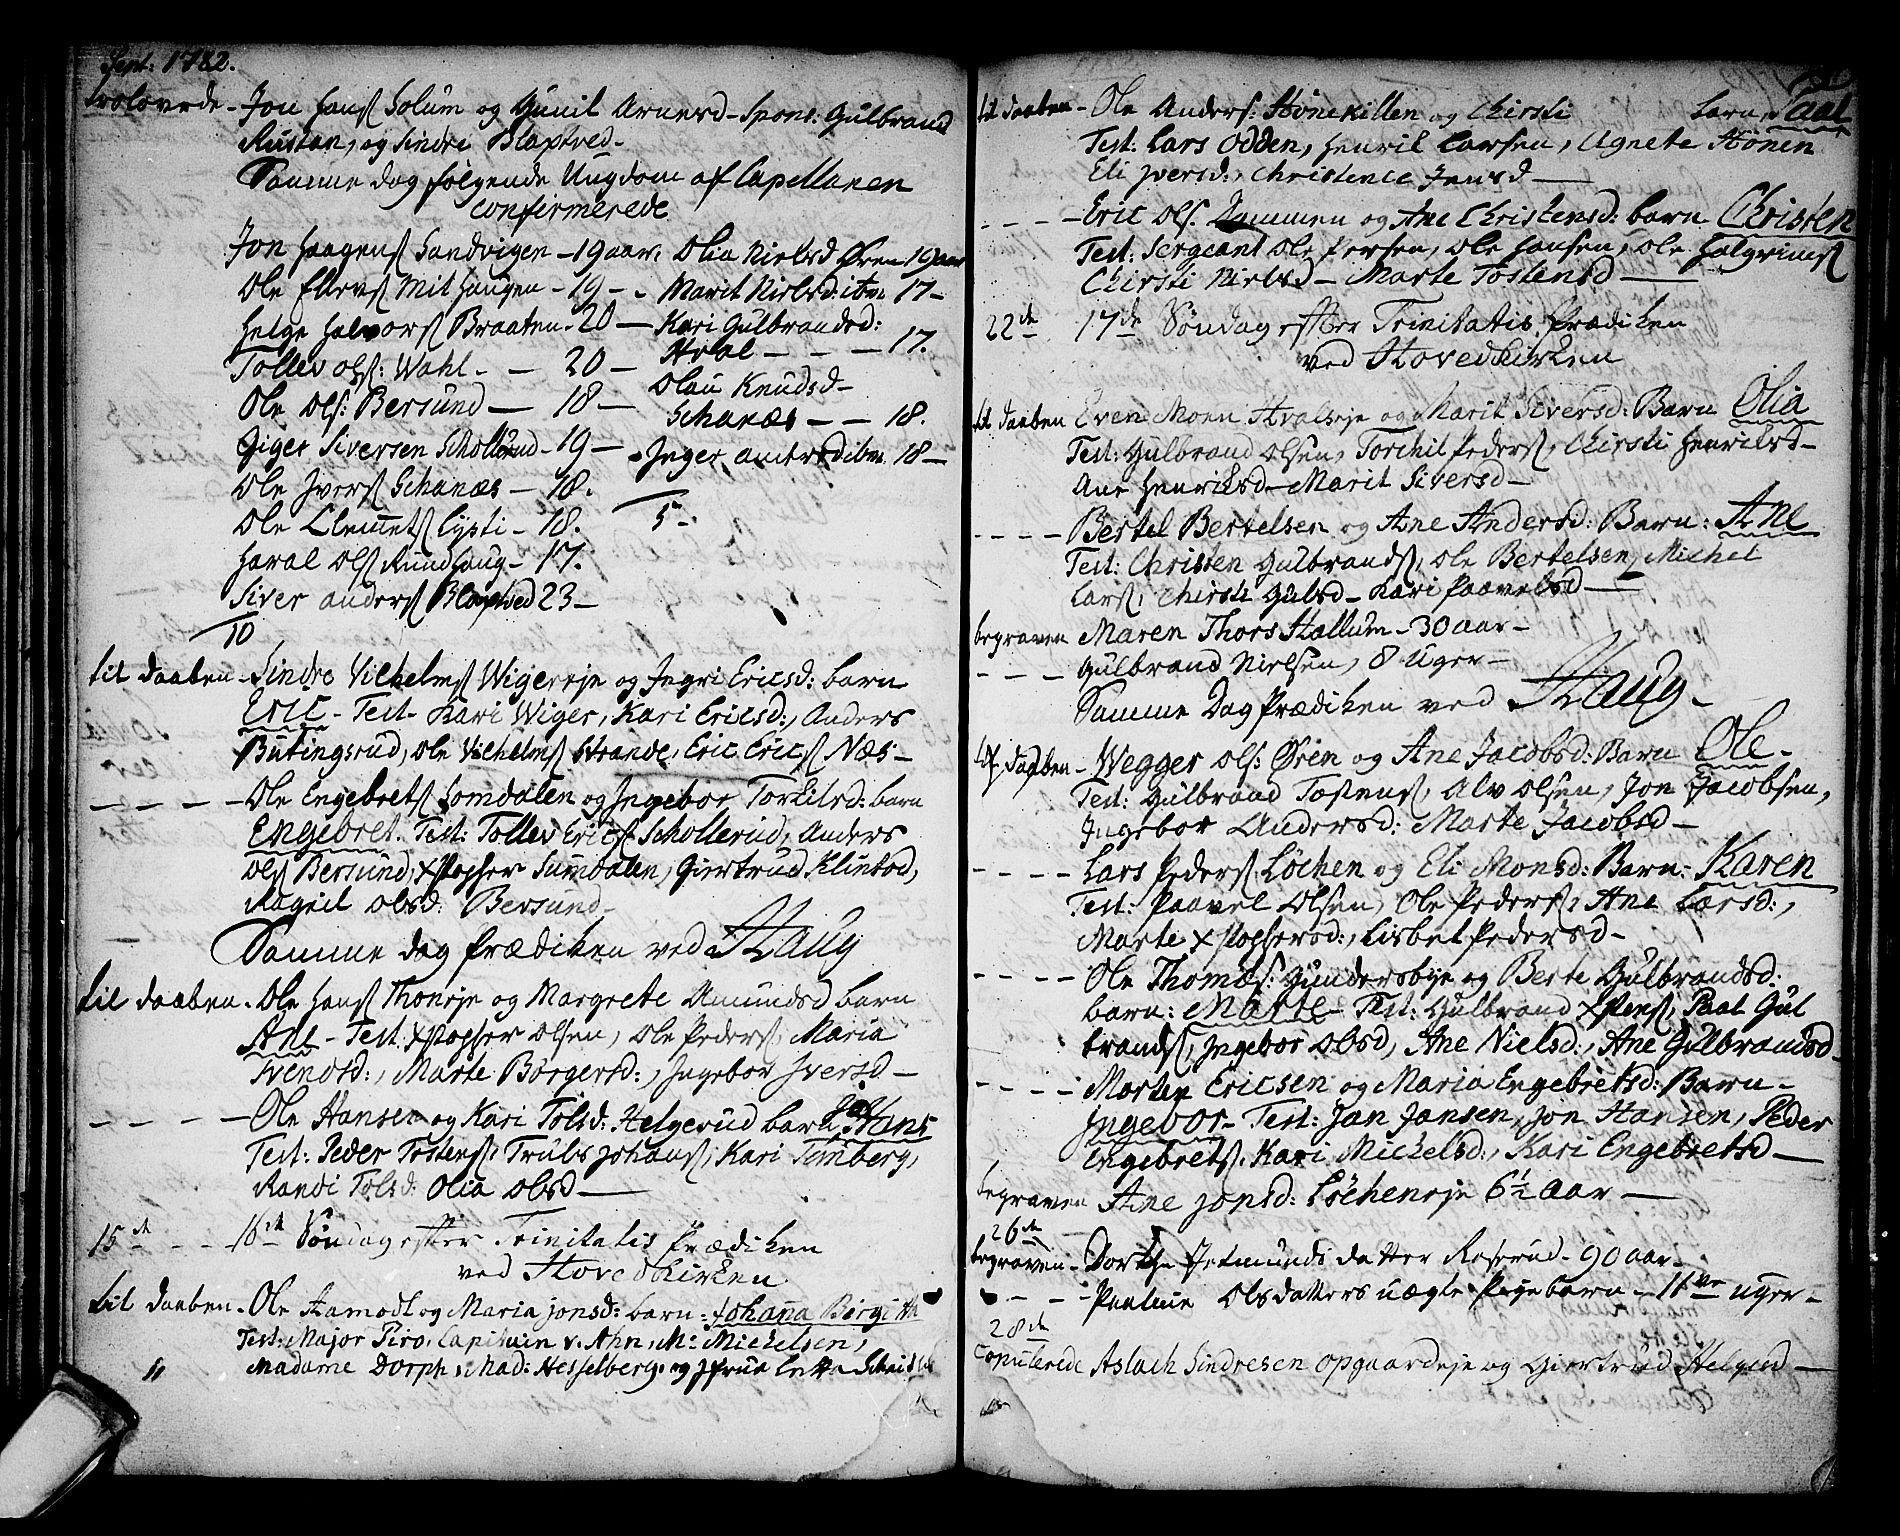 Sept: 1782.
trolovede - Jon Hanss Solum og Gunil Arnesd - Spons: Gulbrand
Rustan, og Sindre Blaptved -
Samme dag følgende Ungdom af Capellanen
confirmerede
Jon Haagenss Sandvigen - 19 aar,
Ole Ellevss Mithaugen - 19 -
Helge Halvorss Braaten - 20 -
Tollev Olss: Wahl - - 20 -
Ole Olss: Bersund - 18 -
Giger Siversen Schollerud - 19 -
Ole Iverss Schanæs - 18.
Ole Clemetss - 18.
Haral Olss Rundhaug - 17.
Siver Anderss Blaptved 23 -
10
Olia Nielsd Øren 19 aar
Marit Nielsd: ibm 17 -
Kari Gulbrandsd:
Hval - - - 17.
Olau Knudsd -
Schanæs - - 18.
Inger ibm. 18 -
5 -
til Daaben - Sindre Vilhelmss Wigereje og Ingri Ericsd: barn
Eric - Test - Kari Wiger, Kari Ericsd:, Anders
Butingsrud, Ole Vilhelmss Strande, Eric Ericss Næs -
- - - - Ole Engebretss Somdalen og Ingebor Torkilsd: barn
Engebret. Test: Tollev Ericss Schollerud, Anders
Olss Bersund, Xstopher Sumdalen, Giertrud Klinkod,
Ragnil Olsd: Bersund -
Samme dag Prædiken ved Haug
til Daaben - Ole Hanss Thoneje og Margrete Amundsd barn
Ane - Test: Xstopher Olsen, Ole Pederss, Maria
Svendsd:, Marte Børgersd:, Ingebor Iversd -
- - - - Ole Hansen og Kari Tolsd: Helgerud barn Hans
Test: Peder Tostenss, Truls Johanss, Kari Timberg,
Randi Tolsd: Olia Olsd -
15 de - - 16 de Søndag efter Trinitatis Prædiken
ved Hovedkirken
til Daaben - Ole Aamodt og Maria Jonsd: barn: Johana Birgith
Test: Major Piro, Capitain v. Ahn, Mr Mickelsen,
Madame Dorph, Mad: Hesselberg, og Jfrue
til Daaben - Ole Anderss: Hønekillen og Chirsti barn Paal
Test: Lars Odden, Henric Larsen, Agnete Hønen
Eli Iversd:, Christence Jensd -
- - - - Eric Olss. Dammen og Ane Christensd: barn Christen
Test: Sergeant Ole Persen, Ole Hansen, Ole Halgrimss
Chirsti Nielsd - Marte Tostensd -
22 de 17 de Søndag efter Trinitatis Prædiken
ved Hovedkirken
til Daaben Even Moen Hvalseje og Marit Siversd: Barn Olia
Test: Gulbrand Olsen, Torchil Pederss, Chirsti Henriksd -
Ane Henriksd - Marit Siversd -
- - - - Bertel Bertelsen og Ane Andersd: Barn: Ane
Test: Christen Gulbrandss, Ole Bertelsen, Michel
Larss, Chirsti Gulsd - Kari Paavelsd -
begraven Maren Thors Hallum - 30 aar -
- - - Gulbrand Nielsen, 8 Uger -
Samme Dag Prædiken ved Haug -
til Daaben - Wegger Olss: Øren og Ane Jacobsd: Barn Ole -
Test: Gulbrand Tostenss, Alv Olsen, Jon Jacobsen,
Ingebor Andersd: Marte Jacobsd -
- - - - Lars Pederss Løchen og Eli Monsd: Barn: Karen
Test: Paavel Olsen, Ole Pederss, Ane Larsd:,
Marte Xstophersd:, Lisbet Pedersd -
- - - - Ole Thomæss: Gundersbye og Berte Gulbrandsd:
barn: Marte - Test: Gulbrand Xstenss, Paal Gul
brandss, Ingebor Olsd, Ane Nielsd:, Ane Gulbrandsd -
- - - - Morten Ericsen og Maria Engebretsd: Barn -
Ingebor - Test: Jan Jansen, Jon Hansen, Peder
Engebretss, Kari Mickelsd:, Kari Engebretsd -
begraven Ane Jonsd: Løcheneje 6½ Aar -
26 de
begraven - Dorthe datter Roserud - 90 aar -
- - - Olsdatters uægte Pigebarn - 11 uger -
28 de
Copulerede Aslach Sindresen Opgaardeje og Giertrud Helgesd -